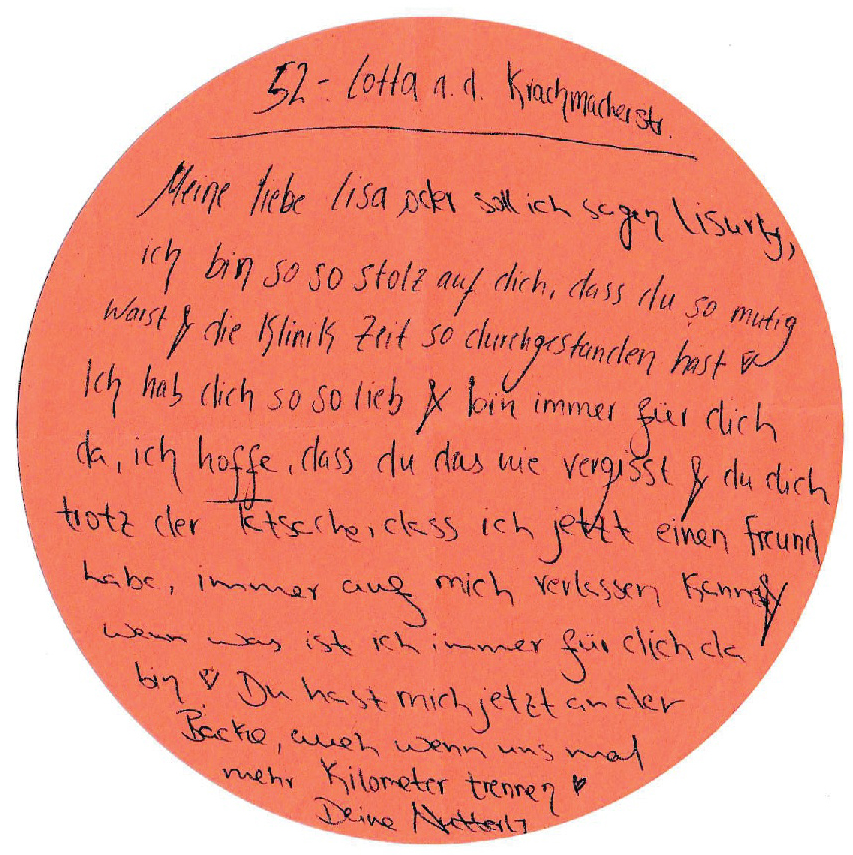 52 - Lotta a. d. Krachmacherstr.
Meine liebe Lisa oder soll ich sagen Lisurty,
ich bin so so stolz auf dich, dass du so mutig
warst & die Klinik Zeit so durchgestanden hast ♡
Ich hab dich so so lieb & bin immer für dich
da, ich hoffe, dass du das nie vergisst & du dich
trotz der Tatsache, dass ich jetzt einen Freund
habe, immer auf mich verlassen kannst &
wenn was ist ich immer für dich da
bin ♡ Du hast mich jetzt an der
Backe, auch wenn uns mal
mehr Kilometer trennen ♡
Deine